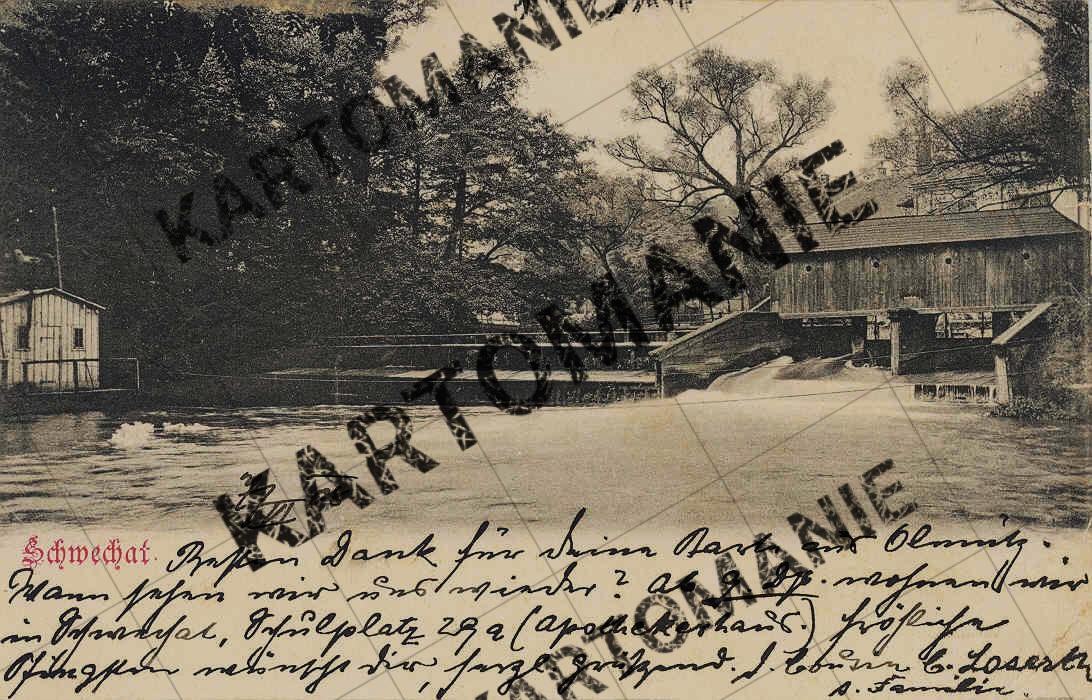 KARTOMANIE
KARTOMANIE
KARTOMANIE
KARTOMANIE
Schwechat.
Besten Dank für deine Karte aus Olmütz.
Wann sehen wir uns wieder? Ab 9. dß. wohnen wir
in Schwechat, Schulplatz 299 (Apothekerhaus.) fröhliche
Pfingsten wünscht dir, herzl. grüßend. d. Cousin C. Loserth
s. Familie